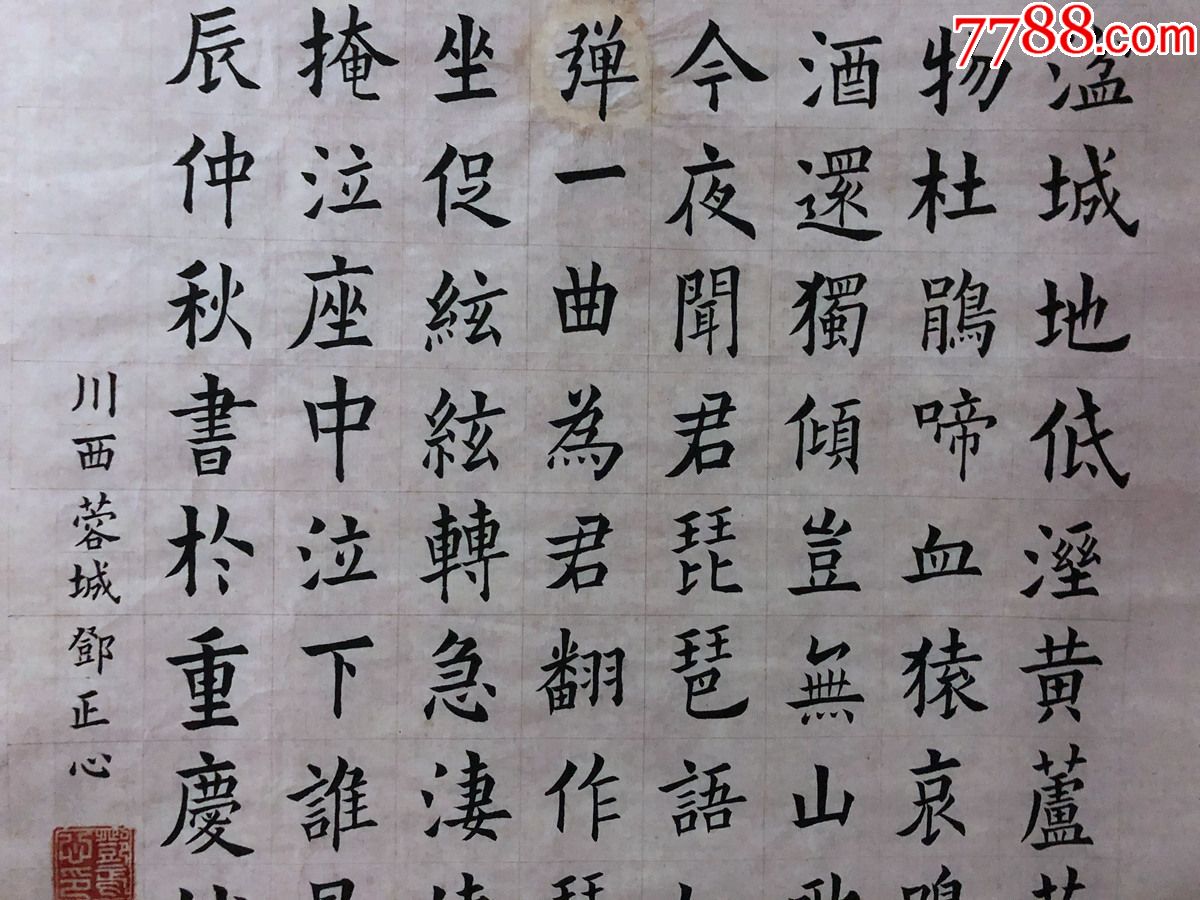 7788.com
湓城地低溼黃蘆
物杜鵑啼血猿哀鳴
酒還獨傾豈無山歌
今夜聞君琵琶語
彈一曲為君翻作琵
坐促絃絃轉急淒
掩泣座中泣下誰最
辰仲秋書於重慶
川西蓉城鄧正心